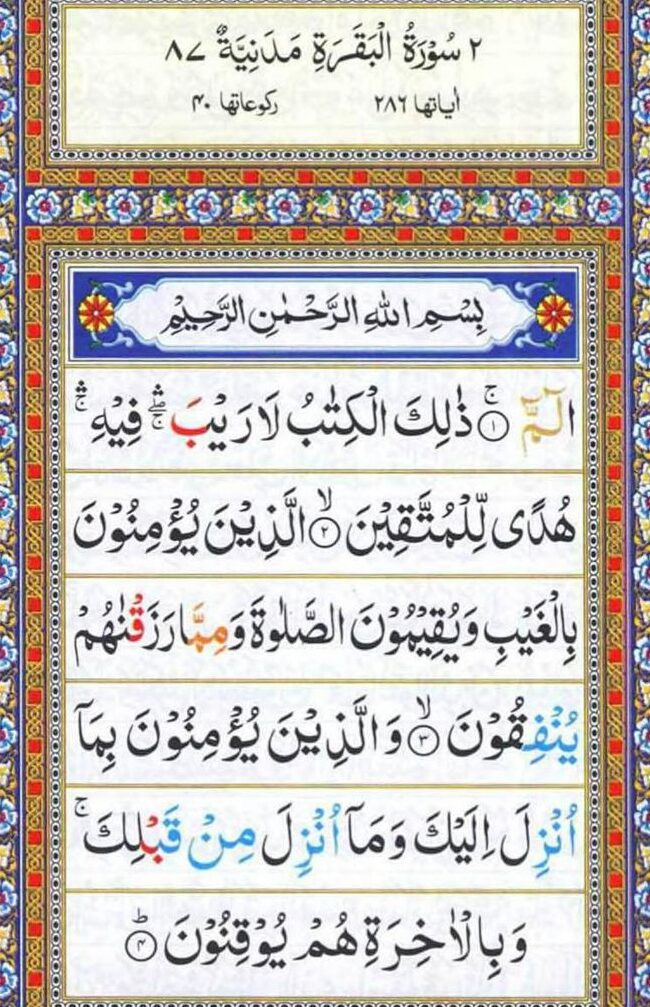 ٢ سُوْرَةُ الْبَقَرَةِ مَدَنِيَّةٌ ٨٧
اٰیاتها ٢٨٦ رکوعاتها ۴۰
بِسْمِ اللهِ الرَّحْمٰنِ الرَّحِيْمِ
الٓمّٓ ۚ﴿١﴾ ذٰلِكَ الْكِتٰبُ لَا رَيْبَ ۛۖۚ فِيْهِ ۛۚ
هُدًى لِّلْمُتَّقِيْنَ ۙ﴿٢﴾ الَّذِيْنَ يُؤْمِنُوْنَ
بِالْغَيْبِ وَيُقِيْمُوْنَ الصَّلٰوةَ وَمِمَّا رَزَقْنٰهُمْ
يُنْفِقُوْنَ ۙ﴿٣﴾ وَالَّذِيْنَ يُؤْمِنُوْنَ بِمَاۤ
اُنْزِلَ اِلَيْكَ وَمَاۤ اُنْزِلَ مِنْ قَبْلِكَ ۚ
وَبِالْاٰخِرَةِ هُمْ يُوْقِنُوْنَ ؕ﴿۴﴾